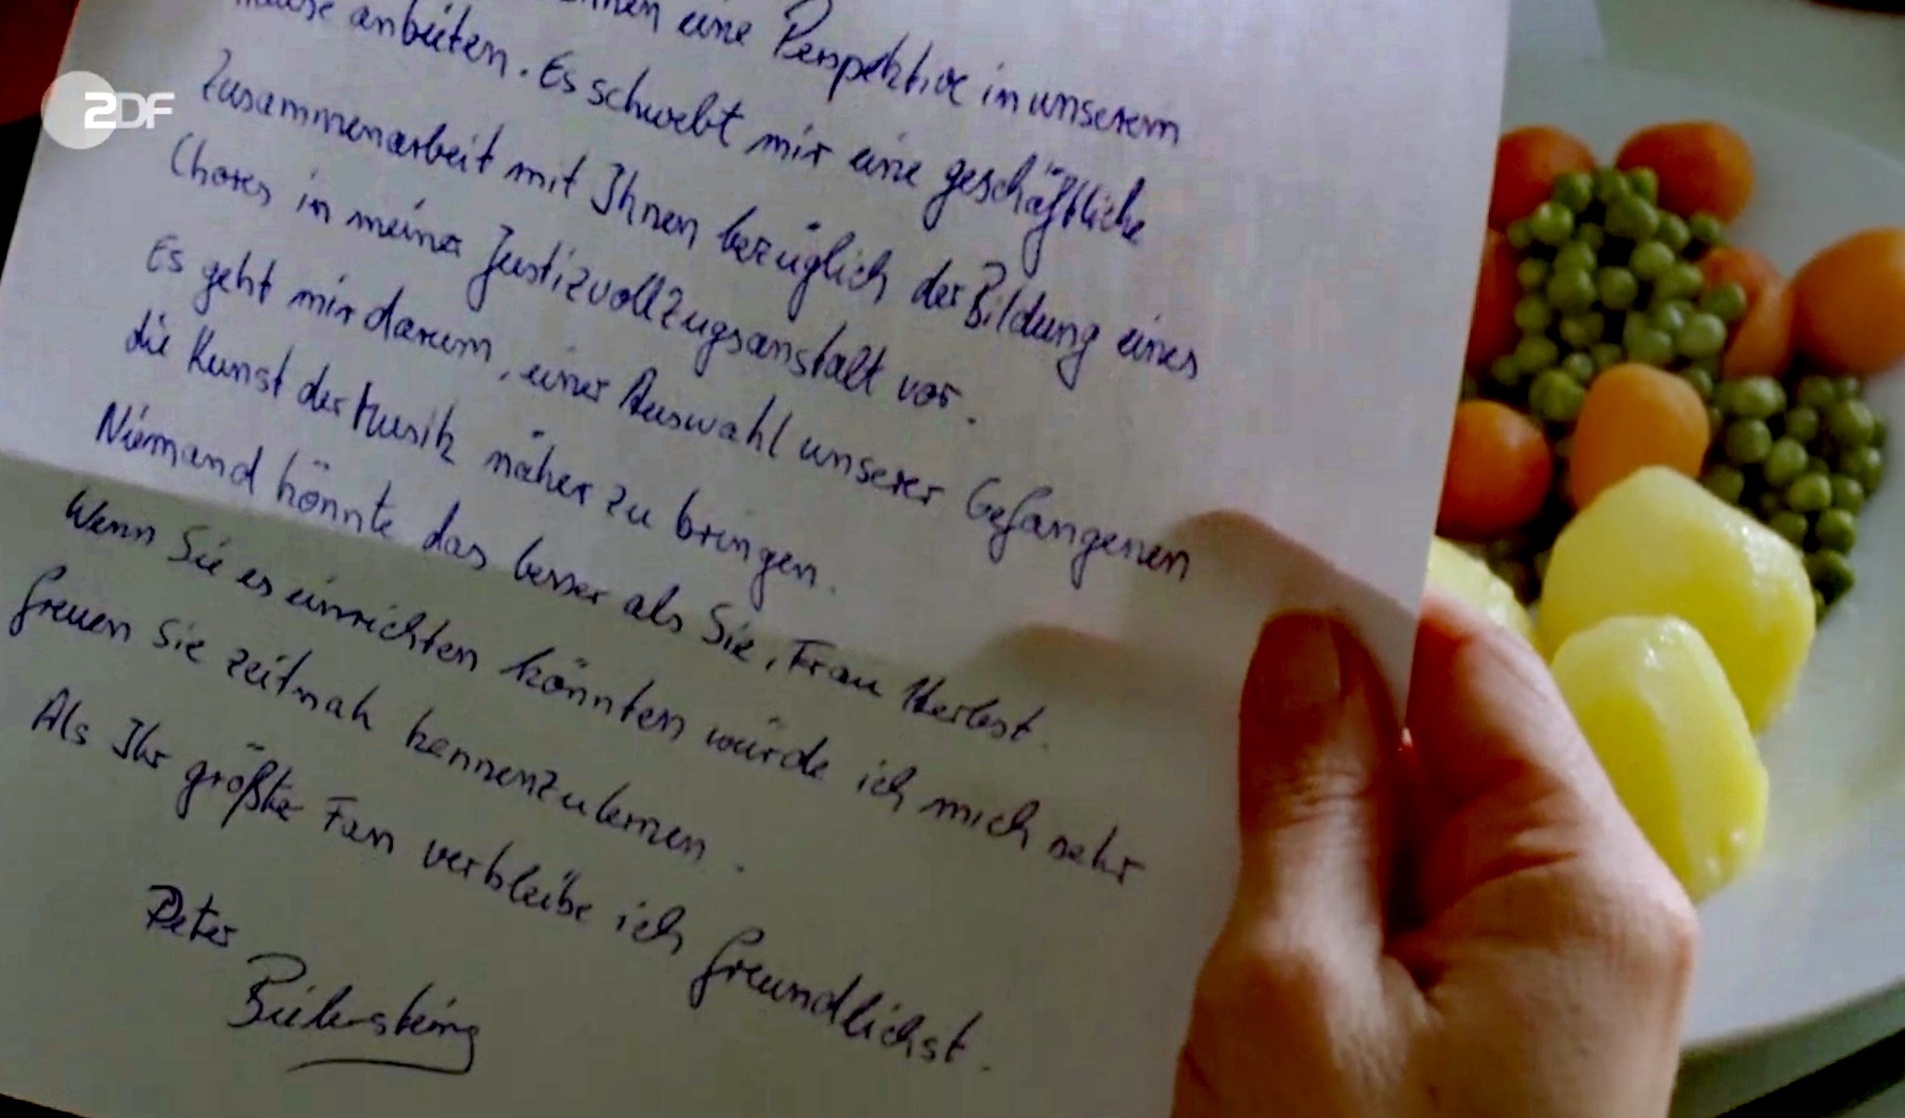 ZDF
eine Perspektive in unserem
anbieten. Es schwebt mir eine geschäftliche
Zusammenarbeit mit Ihnen bezüglich der Bildung eines
Chores in meiner Justizvollzugsanstalt vor.
Es geht mir darum, einer Auswahl unserer Gefangenen
die Kunst der Musik näher zu bringen.
Niemand könnte das besser als Sie, Frau Herbst.
Wenn Sie es einrichten könnten würde ich mich sehr
freuen Sie zeitnah kennenzulernen.
Als Ihr größter Fan verbleibe ich freundlichst.
Peter